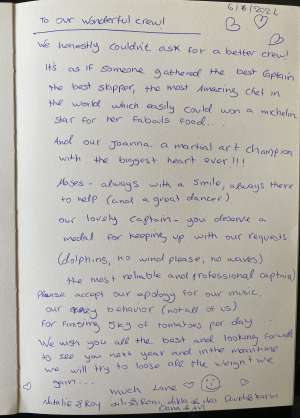 To our wonderful crew!
6/8/2022
We honestly couldn't ask for a better crew!
It's as if someone gathered the best Captain
the best skipper, the most Amazing Chef in
the world which easily could won a michelin
star for her fabouls food...
And our Joanna a martial art champion
with the biggest heart ever!!!
Moses - always with a smile, always there
to help (and a great dancer)
our lovely Captain - you deserve a
medal for keeping up with our requests
(dolphins, no wind please, no waves)
the most reliable and professional captain)
Please accept our apology for our music,
our behavior (not all of us)
For finishing 5kg of tomatoes per day
We wish you all the best and looking forward
to see you next year and in the meantime
we will try to loose all the weight we
gain...
much Love
Natalie & Roy